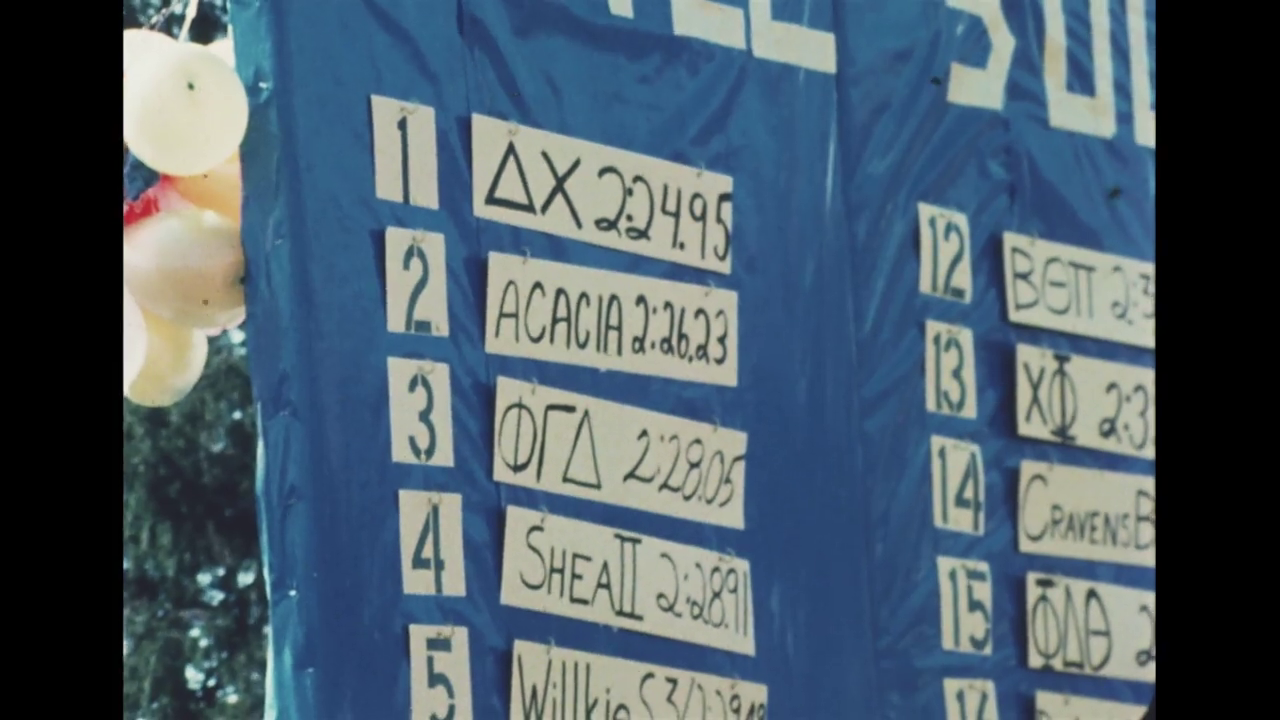 1 ΔΧ 2:24.95
2 ACACIA 2:26.23
3 ΦΓΔ 2:28.05
4 SHEA II 2:28.91
5 Willkie S
12 ΒΘΠ 2:3
13 ΧΦ 2:3
14 CRAVENS B
15 ΦΔΘ 2